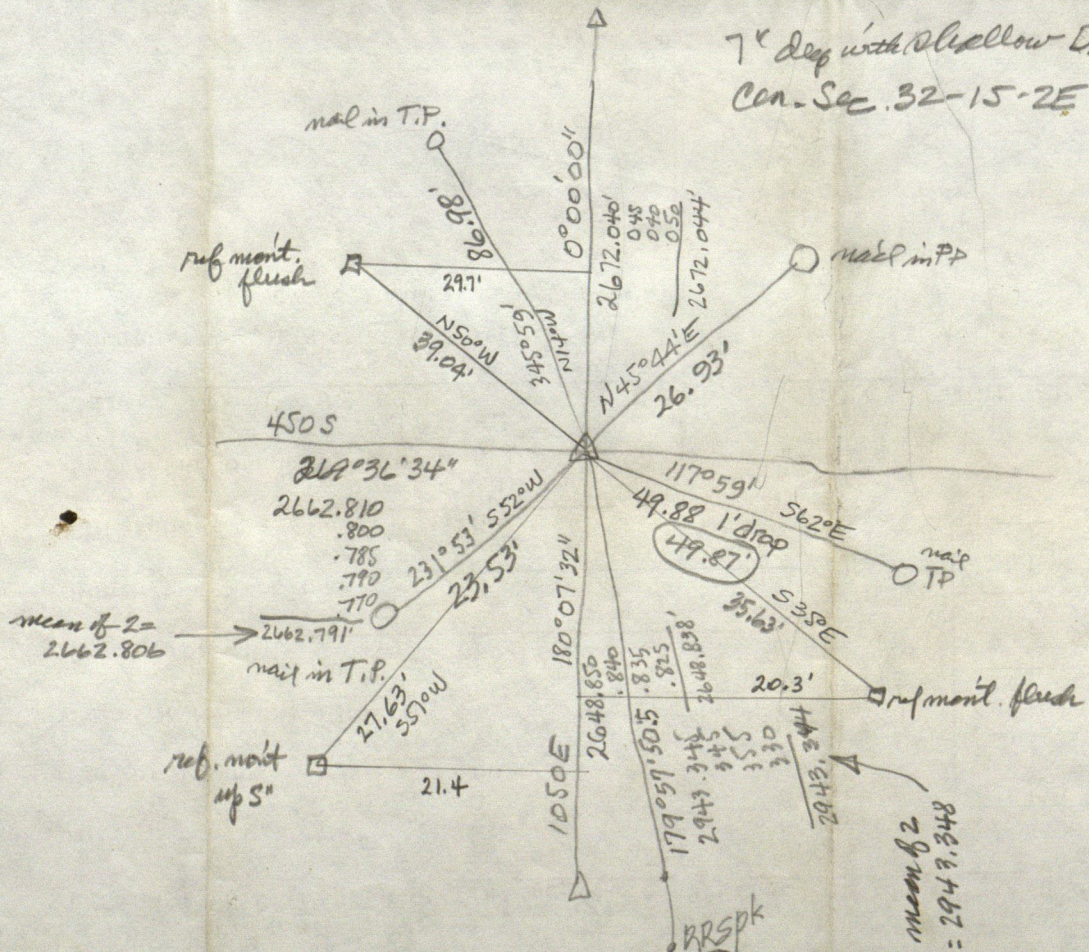 7" deep with shallow D
Cen. Sec. 32-15-2E
nail in T.P.
86.98'
345°59'
N14°W
0°00'00"
2672.040'
045
040
050
2672.044'
nail in PP
N45°44'E
26.93'
ref mon't.
flush
29.7'
N50°W
39.04'
450 S
269°36'34"
2662.810
.800
.785
.790
.770
2662.791'
mean of 2=
2662.806
231°53' S52°W
23.53'
nail in T.P.
27.63'
S51°W
ref. mon't
up 5"
21.4
117°59'
S62°E
nail
TP
49.88 1' drop
49.87'
S35°E
35.63'
20.3'
ref mon't. flush
180°07'32"
1050E
2648.850
.840
.835
.825
2648.838'
179°59'50.5
2943.344
345
355
330
2943.344
mean of 2
= 2943.348
RRSpk